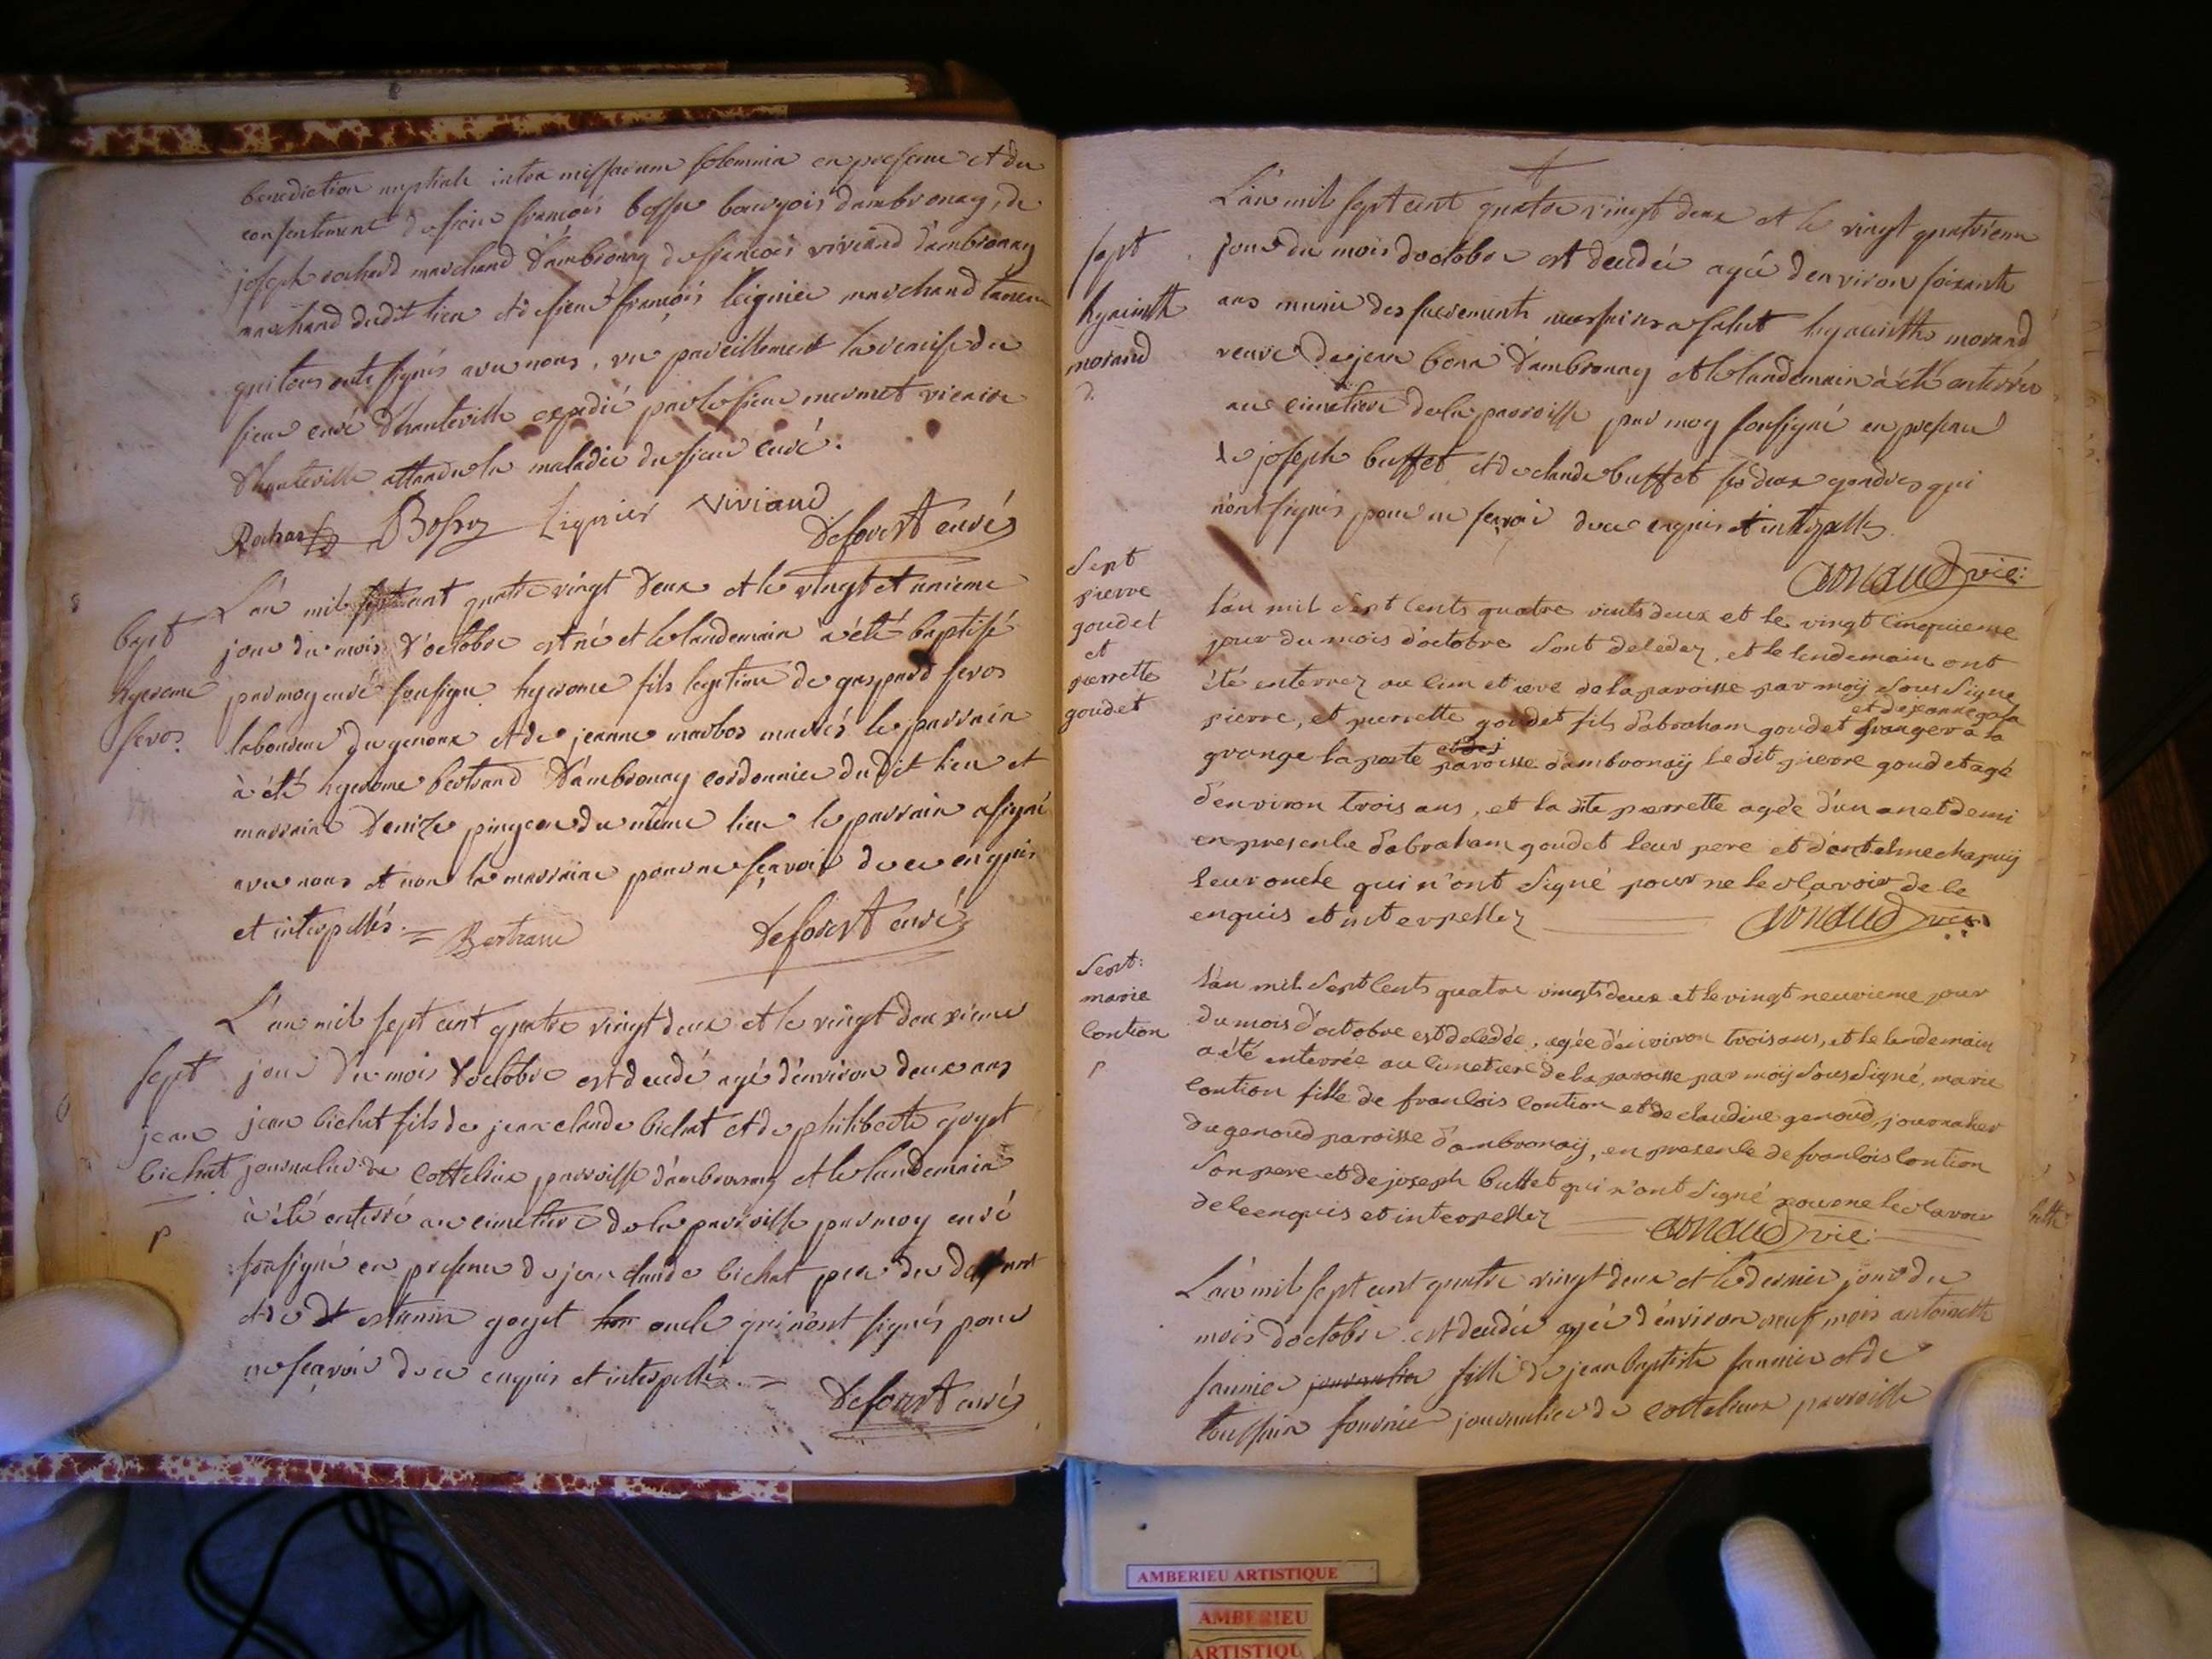 benediction nuptiale intra missarum solemnia en presence et du
consentement de sieur françois bossu bourgois dambronay, de
joseph rochard marchand d'ambronay de françois viviand dambronay
marchand dudit lieu et de sieur françois leignier marchand taneur
qui tous onts signés avec nous, vu pareillement la remise du
sieur curé d'hauteville expedié par le sieur mermet vicaire
d'hauteville attandu la maladie du sieur curé.
Rochard Lignier viviand
Deforest curé
L'an mil sept cent quatre vingt deux et le vingt et unieme
bapt
hyerome
feros
jour du mois d'octobre est né et le landemain a été baptisé
par moy curé sousigné hyerome fils legitime de gaspard feros
laboureur du genoux et de jeanne marbos mariés le parrain
à été hyerome bertrand d'ambronay cordonnier dudit lieu et
marraine denize pingeon du même lieu le parrain a signé
avec nous et non la marraine pour ne sçavoir de ce enquis
et interpellés. = Bertrand Deforest curé
L'an mil sept cent quatre vingt deux et le vingt deuxieme
sept
jean
bichat
p
jour du mois d'octobre est decedé agé d'environ deux ans
jean bichat fils de jean claude bichat et de philiberte goyet
journalier de cottelieux parroisse d'ambournay et le landemain
à été enterré au cimetiere de la parroisse par moy curé
sousigné en presence de jean claude bichat pere du defunt
et de goyet oncle qui n'ont signés pour
ne sçavoir de ce enquis et interpellé. = Deforest curé
L'an mil sept cent quatre vingt deux et le vingt quatrieme
sept
hyacinth
morand
d.
jour du mois d'octobre est decedée agée d'environ soixante
ans munie des sacrements necessaires a salut hyacinthe morand
veuve de jean d'ambronay et le landemain à été enterrée
au cimetiere de la parroisse par moy sousigné en presence
de joseph buffet et de claude buffet ses deux gendres qui
n'ont signés pour ne sçavoir de ce enquis et interpellés.
arnaud vic:
Sept
pierre
goudet
et
pierrette
goudet
l'an mil sept cents quatre vints deux et le vingt cinquieme
jour du mois d'octobre sont decedez, et le lendemain ont
été enterrez au cimetiere de la paroisse par moÿ soussigné
pierre, et pierrette goudet fils d'abraham goudet granger a la
grange la porte paroisse d'ambronaÿ le dit pierre goudet agé
d'environ trois ans, et la dite pierrette agée d'un an et demi
en presence d'abraham goudet leur pere et d'antelme chapuÿ
leur oncle qui n'ont signé pour ne le sçavoir de ce
enquis et interpellez arnaud vic:
Sept:
marie
contion
p
l'an mil sept cents quatre vingts deux et le vingt neuvieme jour
du mois d'octobre est decedée, agée d'environ trois ans, et le lendemain
a été enterrée au cimetiere de la paroisse par moÿ soussigné, marie
contion fille de francois contion et de claudine genoud, journalier
du genoud paroisse d'ambronaÿ, en presence de francois contion
son pere et de joseph buttet qui n'ont signé pour ne le sçavoir
de ce enquis et interpellez arnaud vic:
L'an mil sept cent quatre vingt deux et le dernier jour du
mois d'octobre est decedée agée d'environ neuf mois antoinette
fannier fille de jean baptiste fannier et de
fournier journalier de cottelieux parroisse
AMBERIEU ARTISTIQUE
AMBERIEU
ARTISTIQU